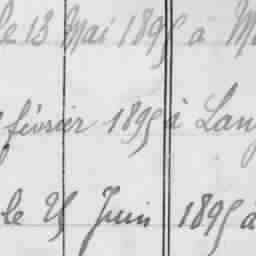 le 13 Mai 1895 à M
février 1895 à Lan
le 25 Juin 1895 à